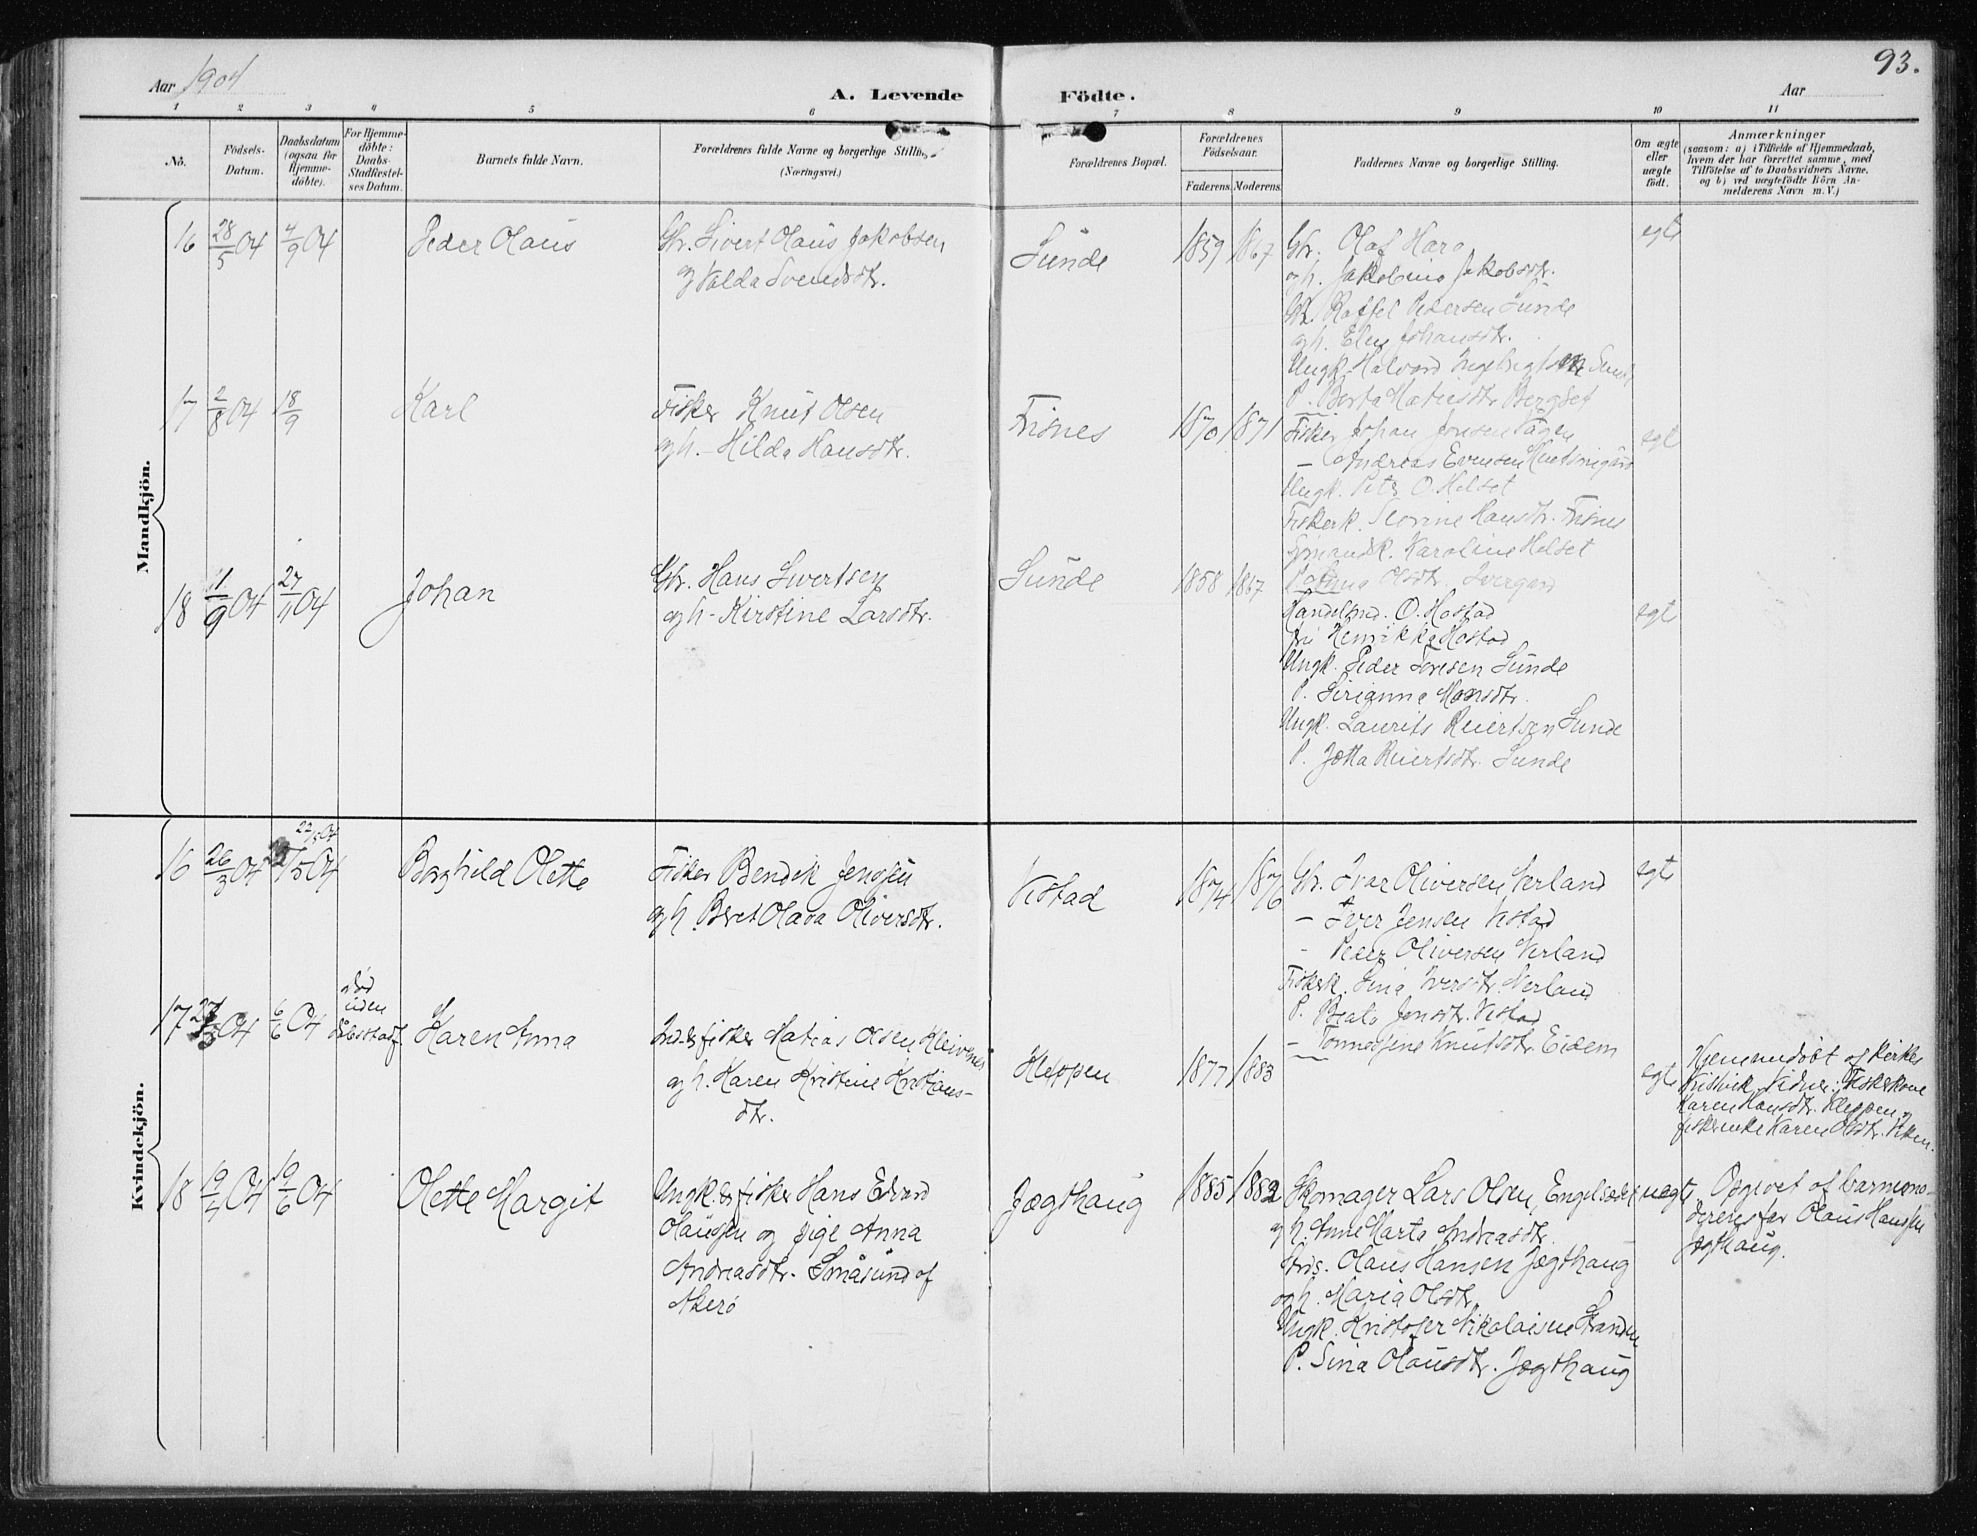 93.
Aar 1904
A. Levende Födte.
Aar
1 2 3 4 5 6 7 8 9 10 11
No.
Födsels-Datum.
Daabsdatum (ogsaa for Hjemme-döbte).
For Hjemme-döbte: Daabs-Stadfæstel-ses Datum.
Barnets fulde Navn.
Forældrenes fulde Navne og borgerlige Stilling. (Næringsvei.)
Forældrenes Bopæl.
Forældrenes Födselsaar.
Faderens. Moderens.
Faddernes Navne og borgerlige Stilling.
Om ægte eller uægte födt.
Anmærkninger
(saasom: a) i Tilfælde af Hjemmedaab, hvem der har forrettet samme, med Tilföielse af to Daabsvidners Navne. og b) ved uægtefödte Börn Anmelderens Navn m. V.)
Mandkjön.
16 28/5 04 4/9 04 Peder Olaus
Gbr. Sivert Olaus Jakobsen
og Valda Svendsdtr.
Sunde 1859 1867
Gbr. Olaf Haro
og h. Jakobine Jakobsdtr.
Gbr. Raffel Pedersen Sunde
og h. Elen Johansdtr.
Ungk. Halvard Ingebrigtsen Sunde
P. Berta Matiesdtr. Bergset
egte
17 2/8 04 18/9 Karl
Fisker Knut Olsen
og h. - Hilda Hansdtr.
Frisnes 1870 1871
Fisker Johan Jonsen Vågen
— Andreas Evensen
Ungk. Peter O. Helset
Fiskerk. Hansdtr. Frisnes
Karoline Helset
Olsdtr.
egte
18 11/9 04 27/11 04 Johan
Gbr. Hans Sivertsen
og h - Kirstine Larsdtr.
Sunde 1858 1867
Handelsmd. O. Hostad
fru Henrikke Hostad
Ungk. Peder Toresen Sunde
P. Sirianna Monsdtr.
Ungk. Laurits Reiertsen Sunde
P. Jetta Reiertsdtr. Sunde
egte
Kvindekjön.
22/5 04
16 26/3 04 /5 04 Borghild Olette
Fisker Bendik Jensen
og h. Beret Olava Oliversdtr.
Vistad 1874 1876
Gbr. Ivar Oliversen Nerland
— Iver Jensen Vistad
- Peder Oliversen Nerland
Fiskerk. Sina Iversdtr. Nerland
P. Beata Jensdtr. Vistad
— Knutsdtr. Eidem
egte
17 27/3 04 6/6 04 død uden dåbsstadf. Karen Anna
Ind. & fisker Matias Olsen
og h. Karen Kristine Kristians-
dtr.
Kleppen 1877 1883
egte
Hjemmedøbt af
Vidner: Fiskerkone
Karen Hansdtr. Kleppen og
fiskerenke Karen Olsdtr.
18 19/4 04 19/6 04 Olette Margit
Ungk. & fisker Hans Edvard
Olausen og pige Anna
Andreasdtr. Småsund af
Akerö
Jægthaug 1885 1882
Skomager Lars Olsen
og h. Anne Marta Andreasdtr.
Olaus Hansen Jægthaug
og h. Maria Olsdtr.
Ungk. Kristofer Nikolaisen Stranden
P. Sina Olausdtr. Jægthaug
uegte
Opgivet af barnemo-
derens far Olaus Hansen
Jægthaug.